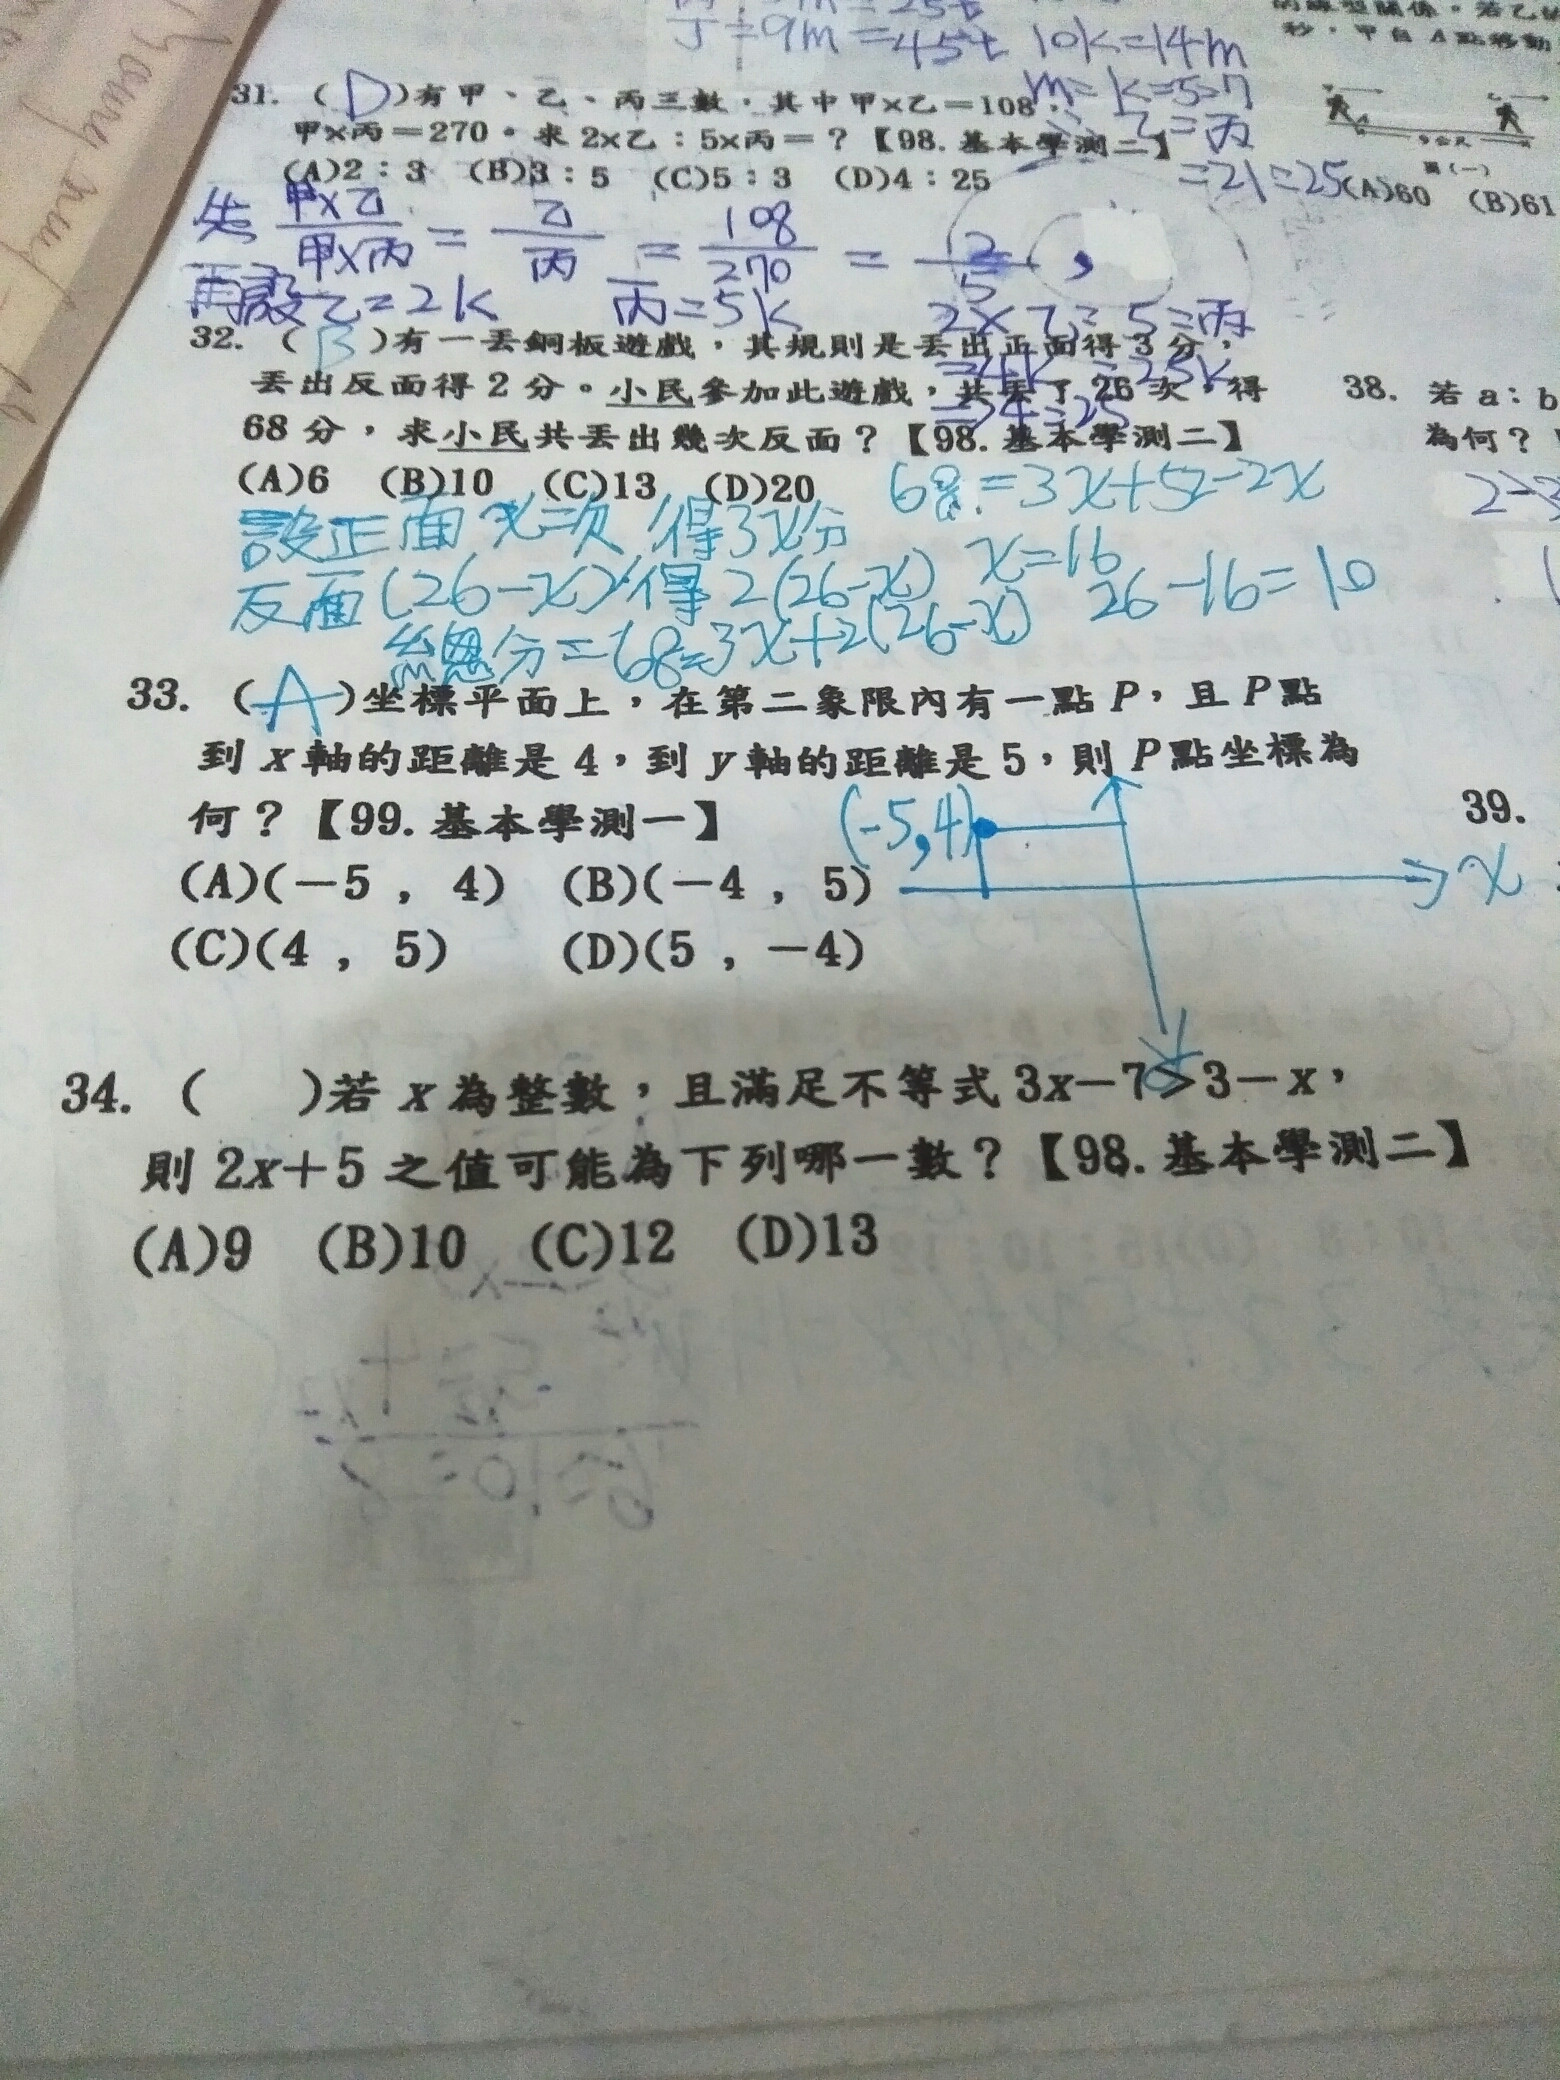 J=9m=45t 10k=14m
31. (D)有甲、乙、丙三數，其中甲×乙＝108，
m=k=5=7
甲×丙＝270。求 2×乙：5×丙＝？【98.基本學測二】
(A)2：3 (B)3：5 (C)5：3 (D)4：25
=21=25
(A)60 (B)61
先 甲×乙/甲×丙 = 乙/丙 = 108/270 = 2/5 ,
再設乙=2k 丙=5k 2×乙=5=丙
=4k=25k
=4=25
32. (B)有一丟銅板遊戲，其規則是丟出正面得 3 分，
丟出反面得 2 分。小民參加此遊戲，共丟了 26 次，得
68 分，求小民共丟出幾次反面？【98.基本學測二】
(A)6 (B)10 (C)13 (D)20
68=3x+52-2x
設正面 x=次 得3x分
x=16
反面(26-x) 得 2(26-x)
26-16=10
總分=68=3x+2(26-x)
33. (A)坐標平面上，在第二象限內有一點 P，且 P 點
到 x 軸的距離是 4，到 y 軸的距離是 5，則 P 點坐標為
何？【99.基本學測一】
(-5,4)
x
(A)(－5 , 4) (B)(－4 , 5)
(C)(4 , 5) (D)(5 , －4)
34. ( )若 x 為整數，且滿足不等式 3x－7＞3－x，
則 2x＋5 之值可能為下列哪一數？【98.基本學測二】
(A)9 (B)10 (C)12 (D)13
38. 若 a：b
為何？
39.